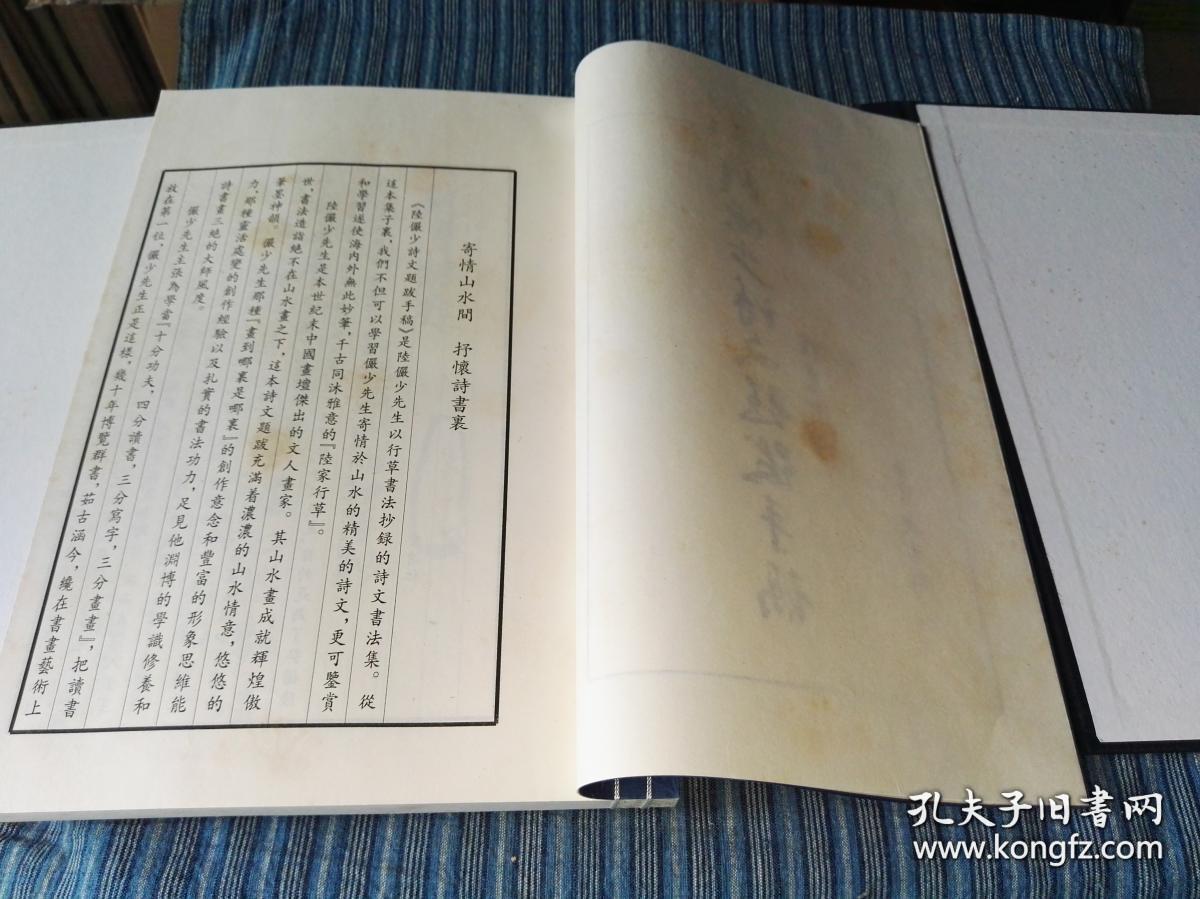 寄情山水間　抒懷詩書裏
《陸儼少詩文題跋手稿》是陸儼少先生以行草書法抄録的詩文書法集。從
這本集子裏，我們不但可以學習儼少先生寄情於山水的精美的詩文，更可鑒賞
和學習遂使海内外無此妙筆，千古同沐雅意的『陸家行草』。
陸儼少先生是本世紀末中國畫壇傑出的文人畫家。其山水畫成就輝煌傲
世，書法造詣絶不在山水畫之下，這本詩文題跋充滿着濃濃的山水情意，悠悠的
筆墨神韻。儼少先生那種『畫到哪裏是哪裏』的創作意念和豐富的形象思維能
力，那種靈活處變的創作經驗以及扎實的書法功力，足見他淵博的學識修養和
詩書畫三絶的大師風度。
儼少先生主張為學當『十分功夫，四分讀書，三分寫字，三分畫畫』，把讀書
放在第一位，儼少先生正是這樣，幾十年博覽群書，茹古涵今，纔在書畫藝術上
孔夫子旧书网
www.kongfz.com